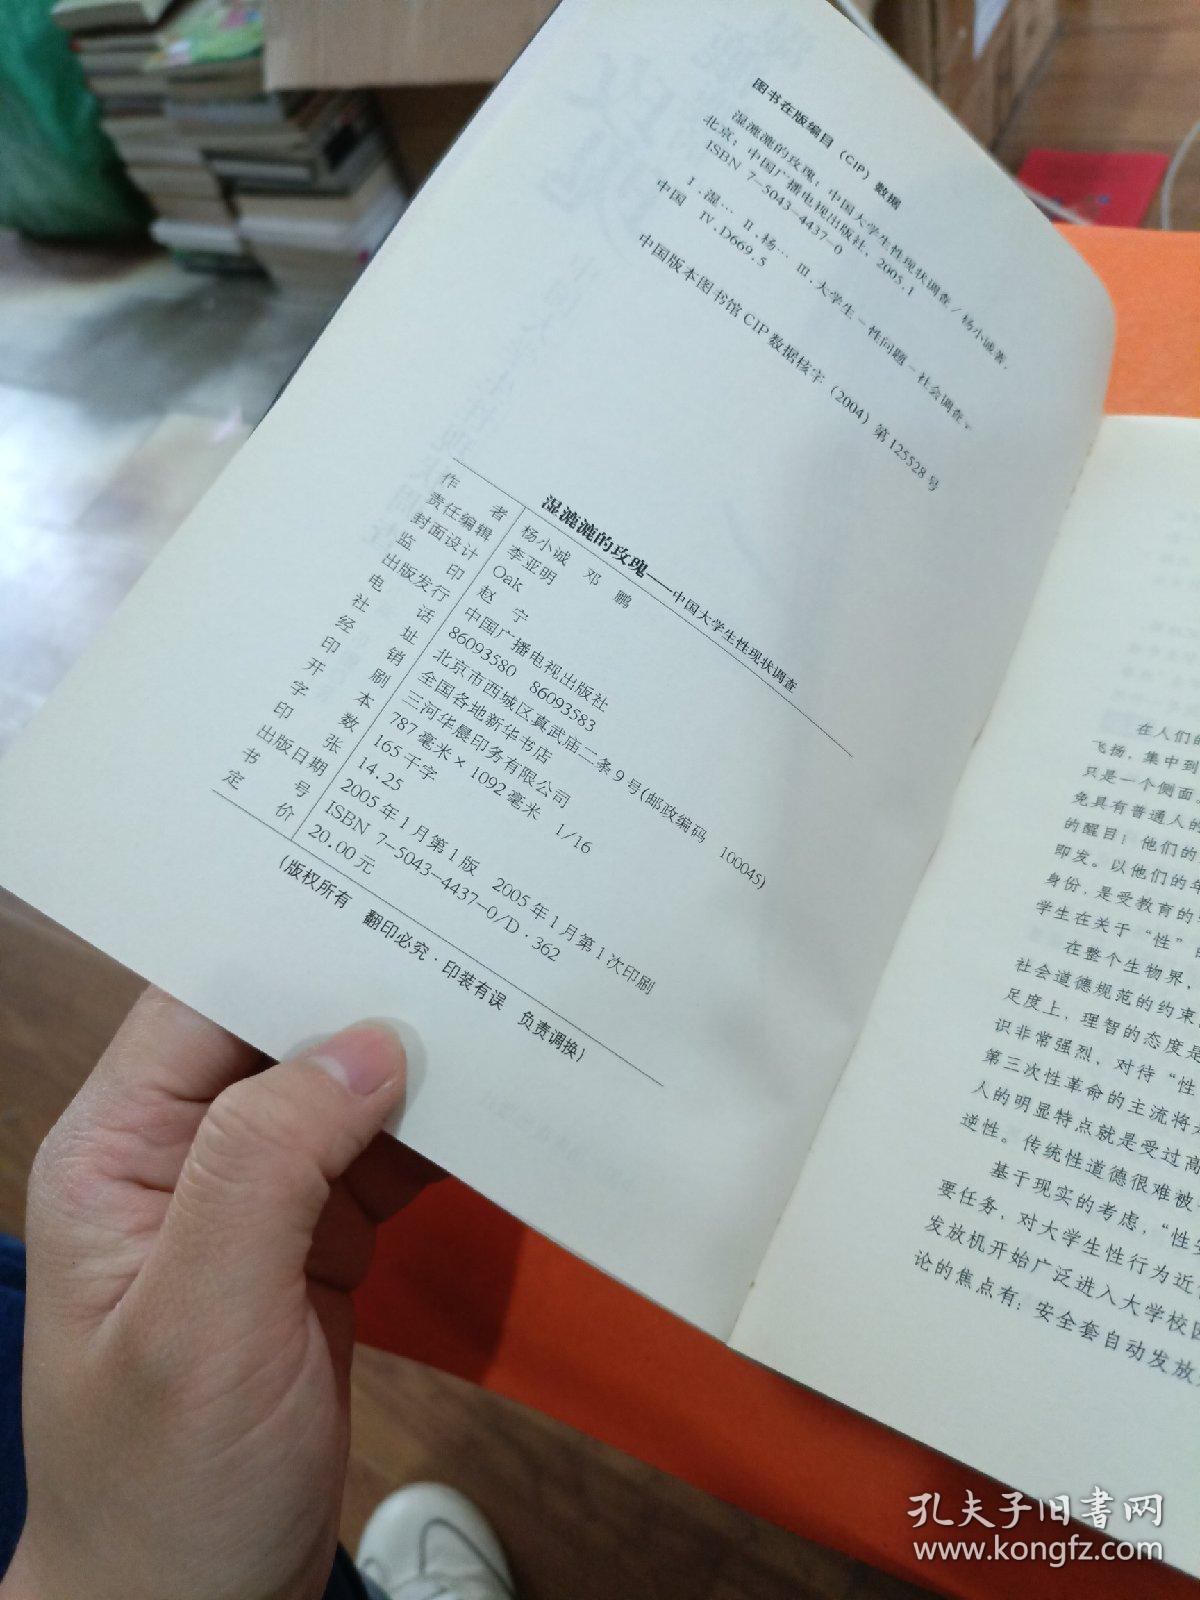 图书在版编目（CIP）数据
湿漉漉的玫瑰：中国大学生性现状调查/杨小诚著.
北京：中国广播电视出版社，2005.1
ISBN 7-5043-4437-0
Ⅰ.湿… Ⅱ.杨… Ⅲ.大学生-性问题-社会调查-
中国 Ⅳ.D669.5
中国版本图书馆CIP数据核字（2004）第125528号
湿漉漉的玫瑰——中国大学生性现状调查
作者 杨小诚 邓鹏
责任编辑 李亚明
封面设计 Oak
监印 赵宁
出版发行 中国广播电视出版社
电话 86093580 86093583
社址 北京市西城区真武庙二条9号(邮政编码 100045)
经销 全国各地新华书店
印刷 三河华晨印务有限公司
开本 787毫米×1092毫米 1/16
字数 165千字
印张 14.25
出版日期 2005年1月第1版 2005年1月第1次印刷
书号 ISBN 7-5043-4437-0/D·362
定价 20.00元
(版权所有 翻印必究·印装有误 负责调换)
在人们的
飞扬，集中到
只是一个侧面
免具有普通人的
的醒目！他们的
即发。以他们的年
身份，是受教育的
学生在关于“性”
在整个生物界，
社会道德规范的约束
足度上，理智的态度是
识非常强烈，对待“性
第三次性革命的主流将
人的明显特点就是受过高
逆性。传统性道德很难被
基于现实的考虑，“性
要任务，对大学生性行为近
发放机开始广泛进入大学校园
论的焦点有：安全套自动发放
孔夫子旧书网
www.kongfz.com